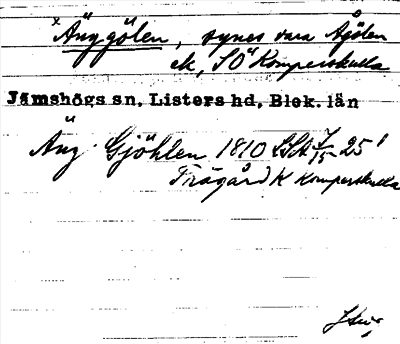 ×Änggölen, synes vara Agölen
ek, SO Komperskulla
Jämshögs sn, Listers hd, Blek. län
Äng Gjöhlen 1810 LSA 7/15 25'
Trägård K Komperskulla